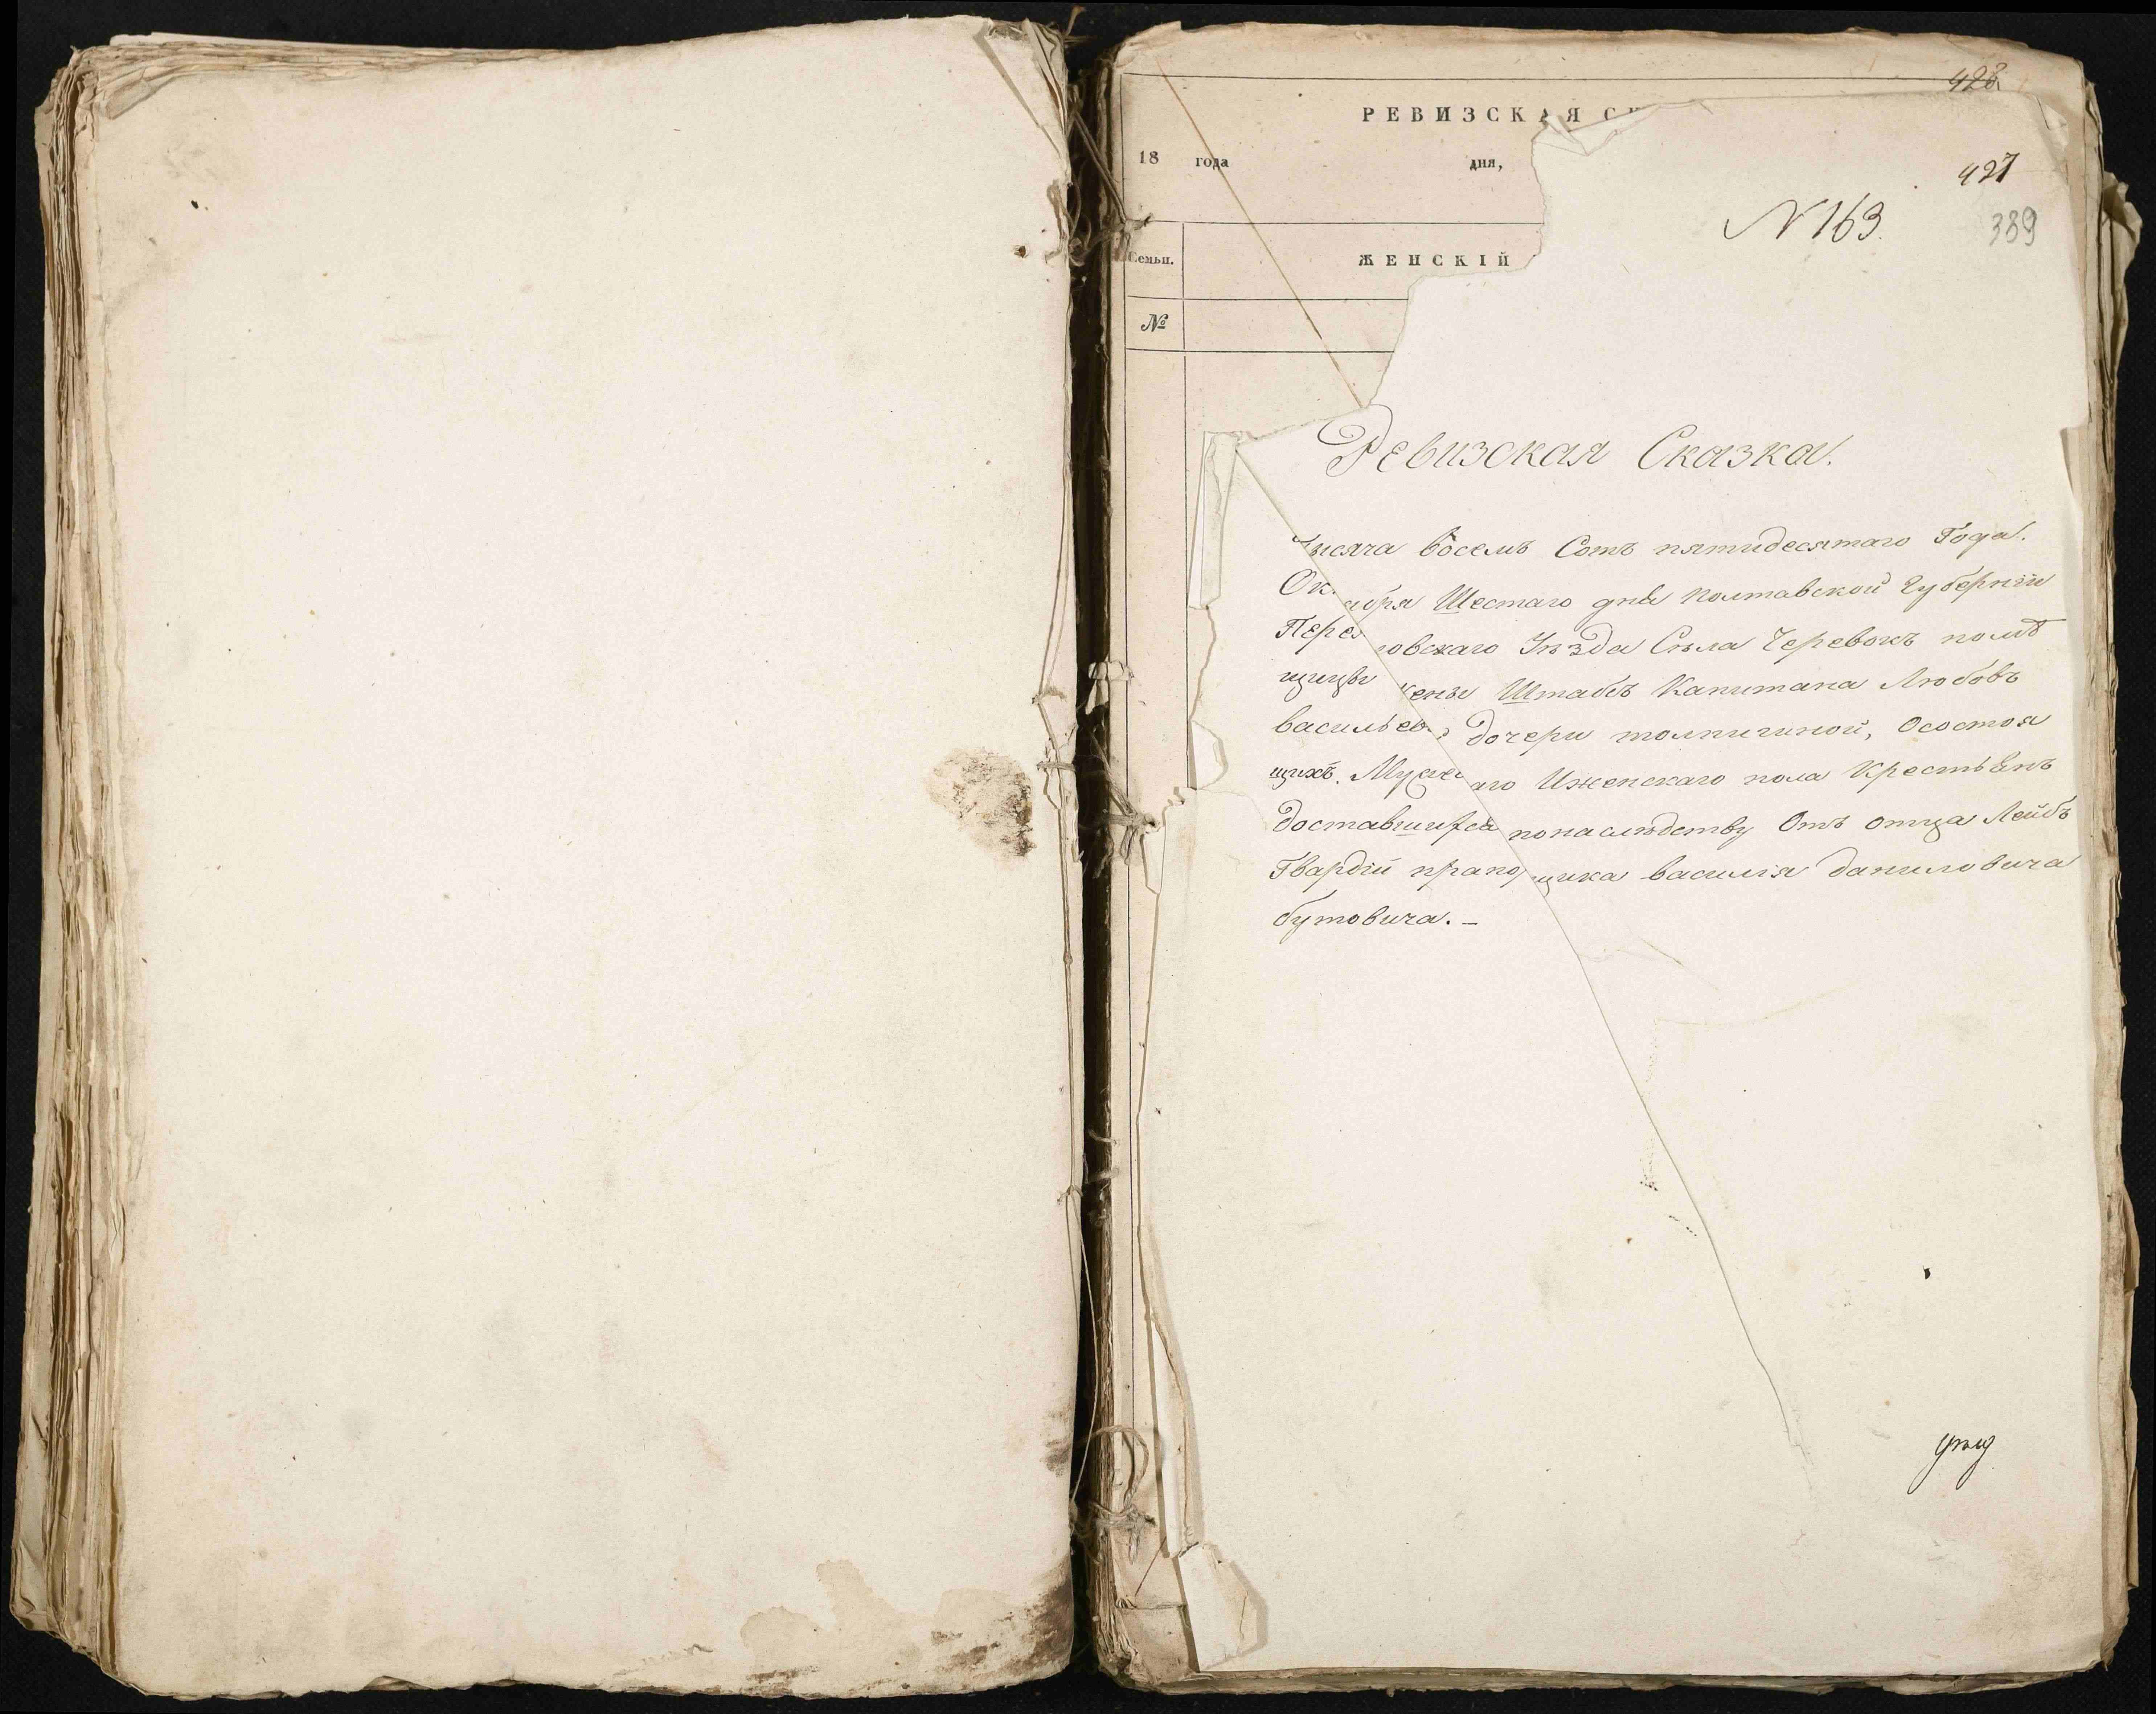 428
РЕВИЗСКАЯ
18 года дня,
427
N 163.
389
Семьи. ЖЕНСКІЙ
№
Ревизская Сказка.
тысяча восемъ Сотъ пятидесятаго Года.
Ок ября Шестаго дня полтавской Губерніи
Пере овскаго Уѣзда Сѣла Черевокъ помѣ
щицы жены Штабсъ Капитана Любовъ
васильев дочери толпигиной, Осостоя
щихъ Муже аго Иженскаго пола Крестьянъ
доставшихся понаслѣдству Отъ отца Лейбъ
Гвардіи прапо щика василія даниловича
бутовича. —